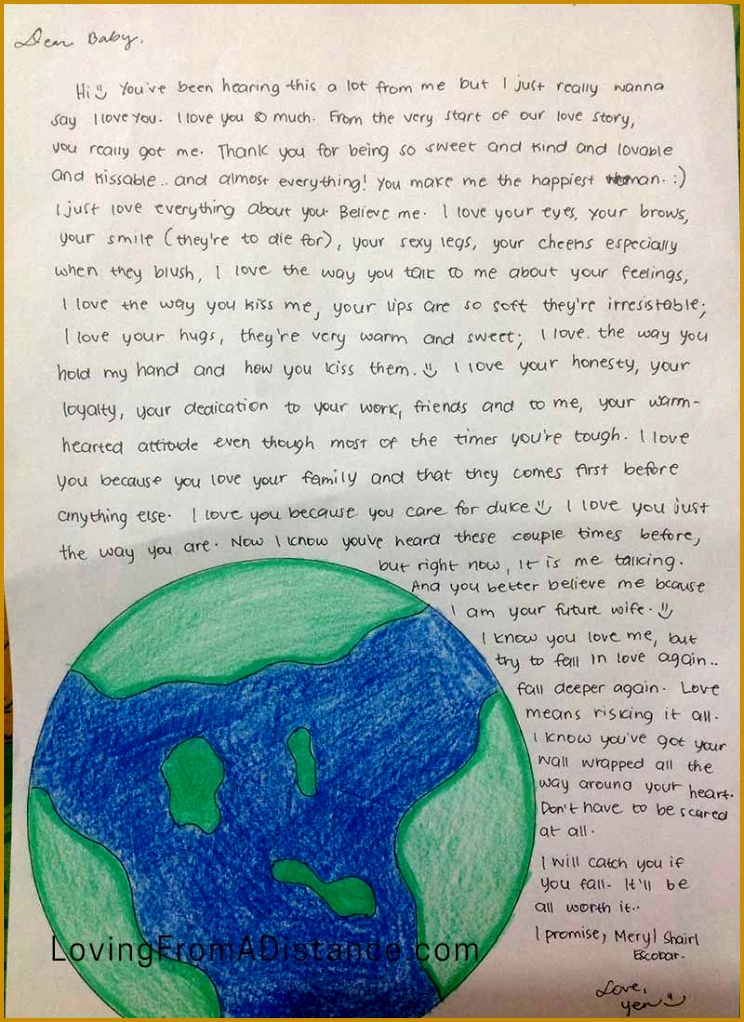 Dear Baby,
Hi☺ You've been hearing this a lot from me but I just really wanna
say I love you. I love you so much. From the very start of our love story,
you really got me. Thank you for being so sweet and kind and lovable
and kissable.. and almost everything! You make me the happiest woman. :)
I just love everything about you. Believe me. I love your eyes, your brows,
your smile (they're to die for), your sexy legs, your cheeks especially
when they blush, I love the way you talk to me about your feelings,
I love the way you kiss me, your lips are so soft they're irresistable;
I love your hugs, they're very warm and sweet; I love. the way you
hold my hand and how you kiss them.☺ I love your honesty, your
loyalty, your dedication to your work, friends and to me, your warm-
hearted attitude even though most of the times you're tough. I love
you because you love your family and that they comes first before
anything else. I love you because you care for duke☺ I love you just
the way you are. Now I know you've heard these couple times before,
but right now, it is me talking.
And you better believe me bcause
I am your future wife.☺
I know you love me, but
try to fall in love again..
fall deeper again. Love
means risking it all.
I know you've got your
wall wrapped all the
way around your heart.
Don't have to be scared
at all.
I will catch you if
you fall. It'll be
all worth it..
I promise, Meryl Shairl
Escobar.
Love,
yen☺
LovingFromADistance.com